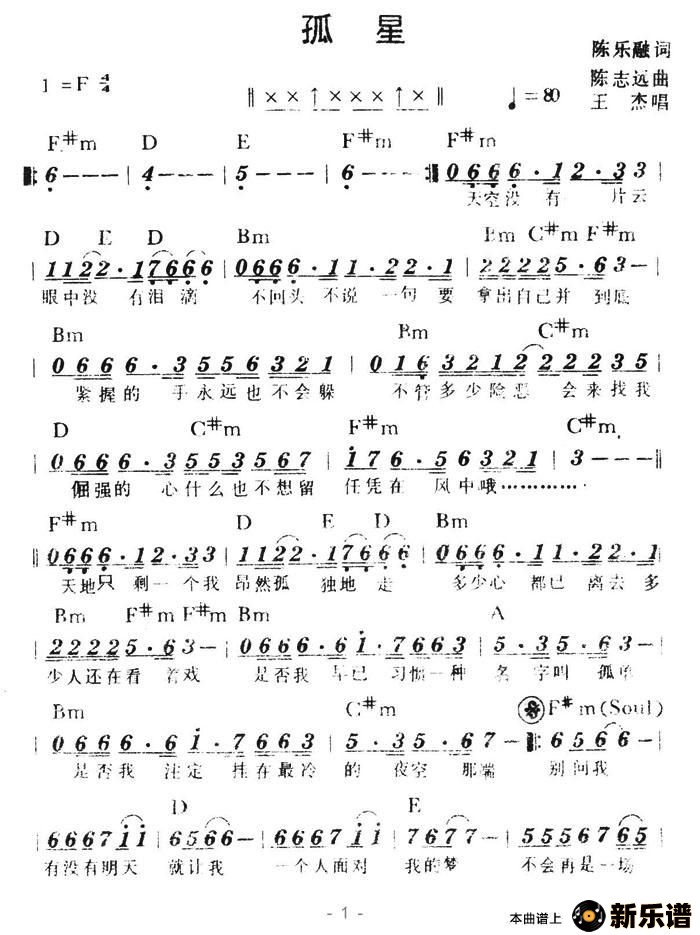 孤 星
陈乐融词
1=F 4/4
陈志远曲
♩=80
王 杰唱
‖××↑×××↑×‖
F#m D E F#m F#m
‖:6---|4---|5---|6---:‖0666·12·33
天空没 有一 片云
D E D Bm Bm C#m F#m
|1122·17666|0666·11·22·1|22225·63-|
眼中没 有泪滴 不回头 不说一句要 拿出自己并 到底
Bm Bm C#m
|0666·3556321|016321222235|
紧握的 手永远也不会躲 不管多少险恶 会来找我
D C#m F#m C#m
|0666·3553567|i76·56321|3---‖
倔强的 心什么也不想留 任凭在 风中哦…………
F#m D E D Bm
‖0666·12·33|1122·17666|0666·11·22·1
天地只 剩一个我 昂然孤 独地走 多少心 都已离去多
Bm F#m F#m Bm A
|22225·63-|0666·6i·7663|5·35·63
少人还在看 着戏 是否我 早已 习惯一种 名字叫孤单
Bm C#m F#m(Soul)
|0666·6i·7663|5·35·67-‖:6566-|
是否我 注定 挂在最冷 的 夜空那端 别问我
D E
|6667ii|6566-|6667ii|7677-|5556765|
有没有明天 就让我 一个人面对 我的梦 不会再是一场
- 1 -
本曲谱上 新乐谱